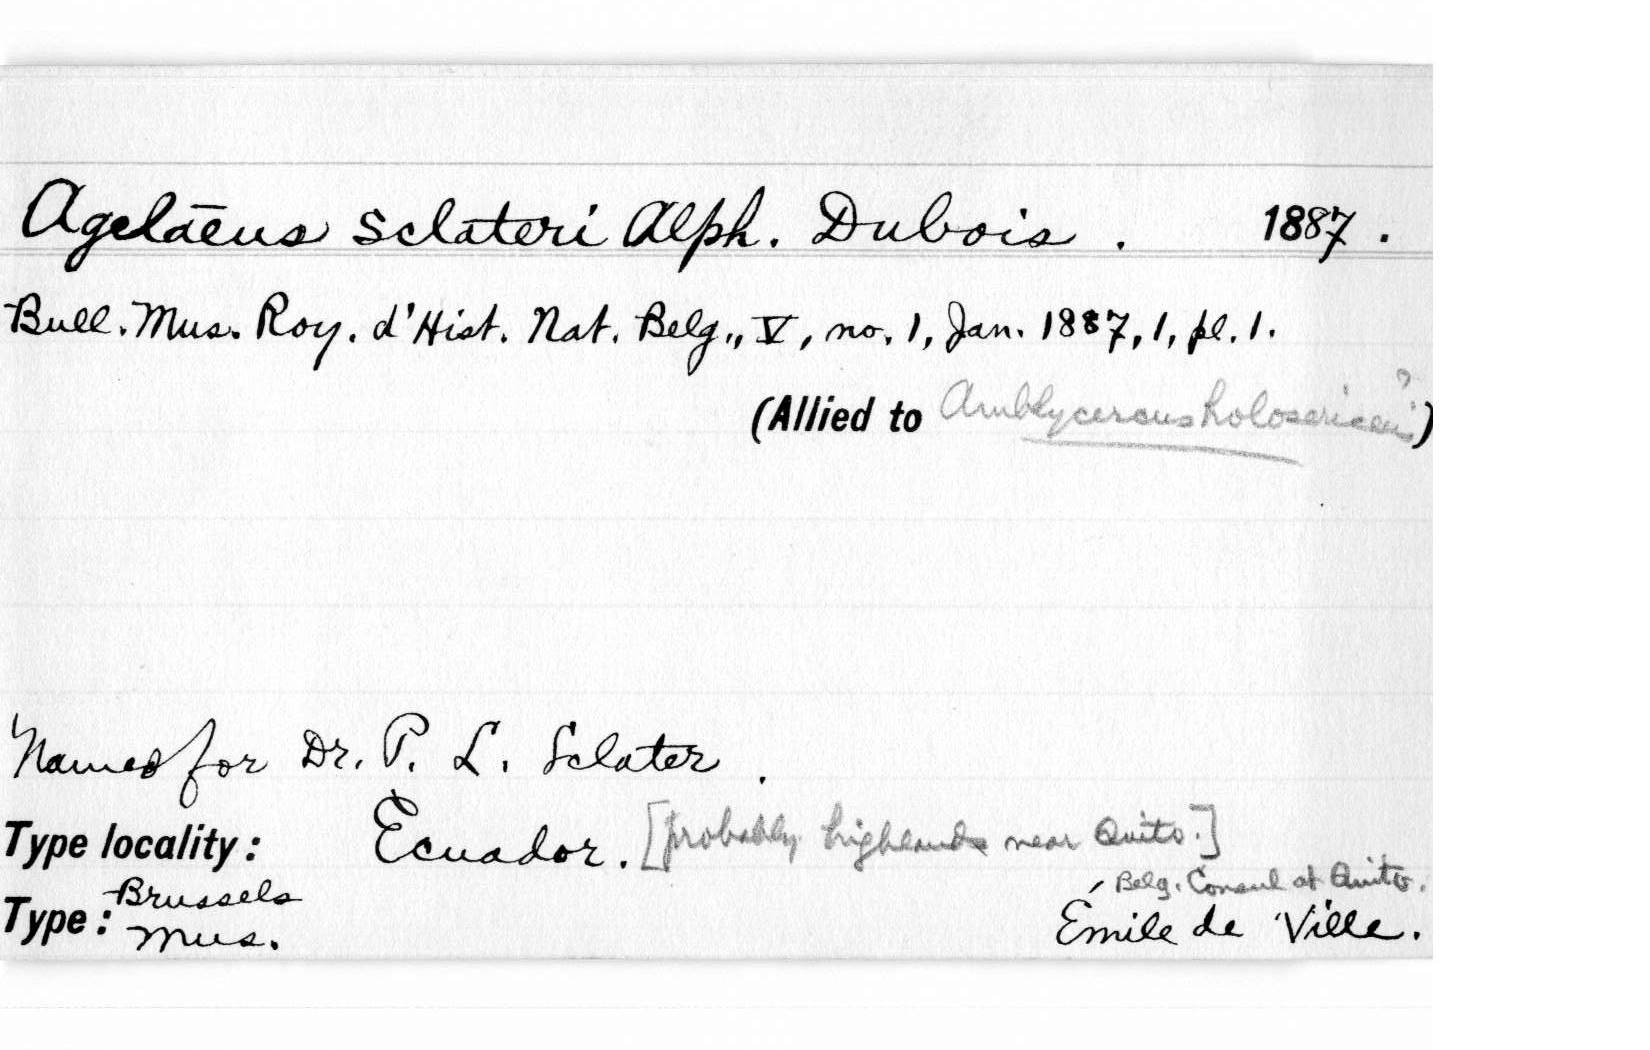 Agelāēus sclateri Alph. Dubois. 1887.
Bull. Mus. Roy. d'Hist. Nat. Belg., V, no. 1, Jan. 1887, 1, pl. 1.
(Allied to Amblycercus holosericeus?)
Named for Dr. P. L. Sclater.
Type locality: Ecuador. [probably highlands near Quito.]
Belg. Consul at Quito.
Type: Brussels Mus. Émile de Ville.